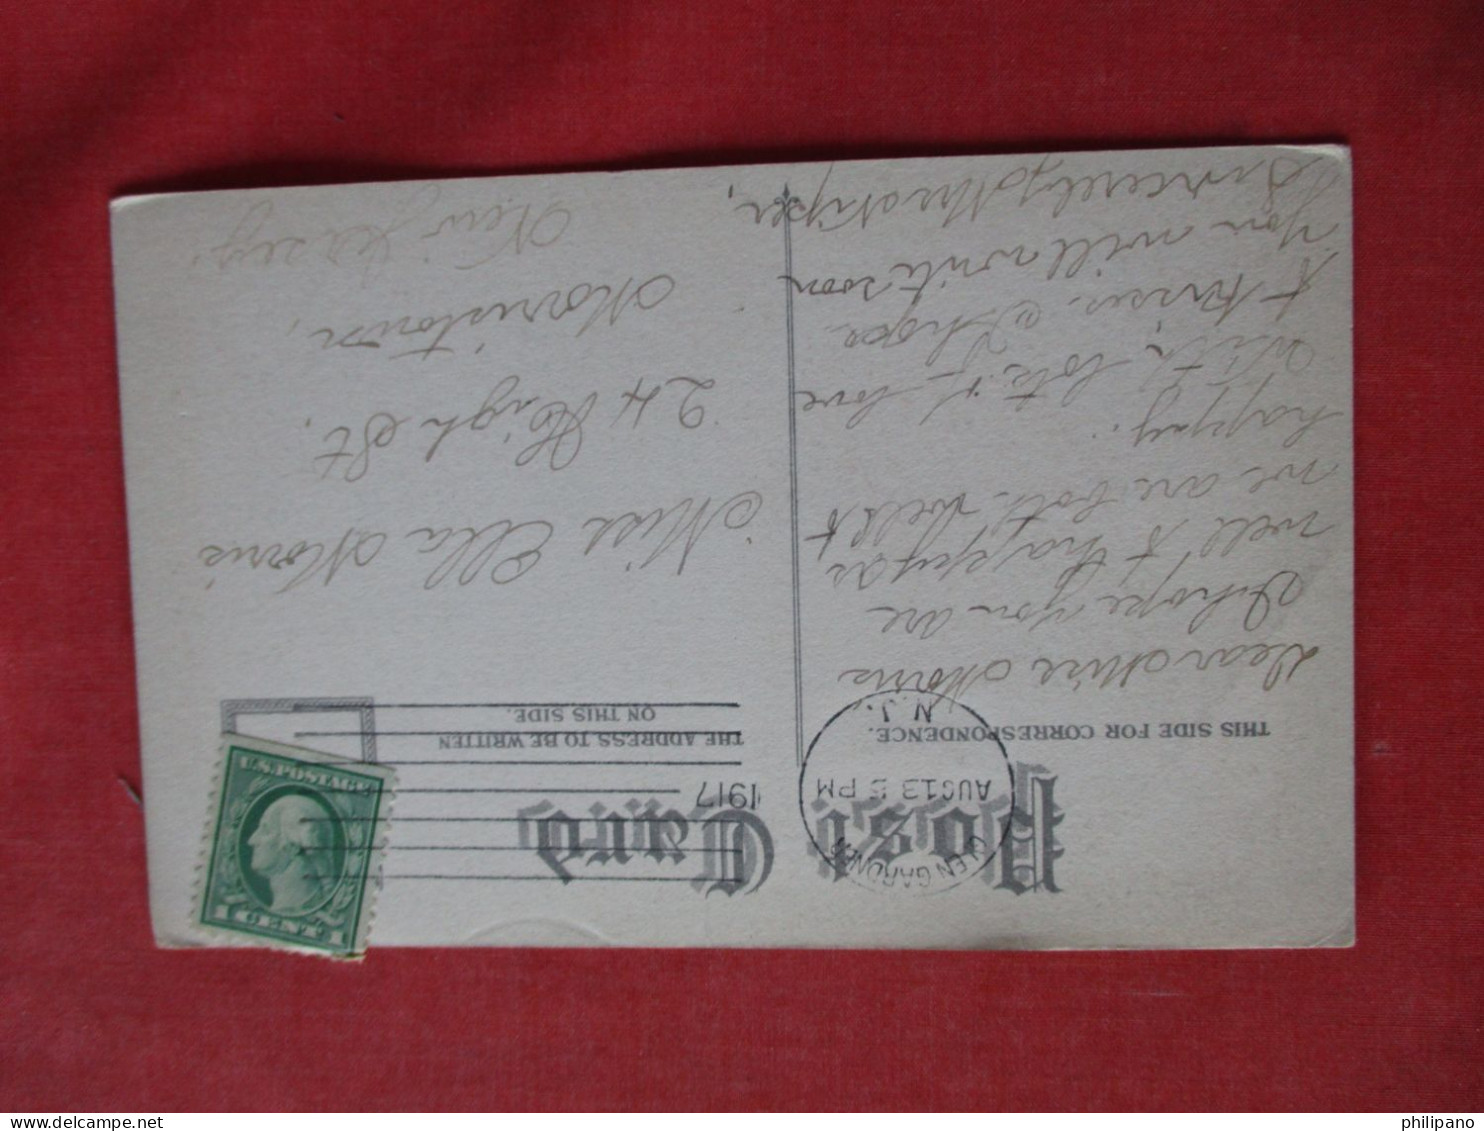 Post Card
THIS SIDE FOR CORRESPONDENCE.
THE ADDRESS TO BE WRITTEN
ON THIS SIDE.
GLEN GARDNER
AUG 13 5 PM
N.J.
1917
U.S. POSTAGE
1 CENT 1
Dear Miss Morris
I hope you are
well & happy as
we are both well &
happy.
With lots of love
& kisses. I hope
you will write soon
Sincerely
Miss Ella Morris
24 High St.
Morristown,
New Jersey.
philipano